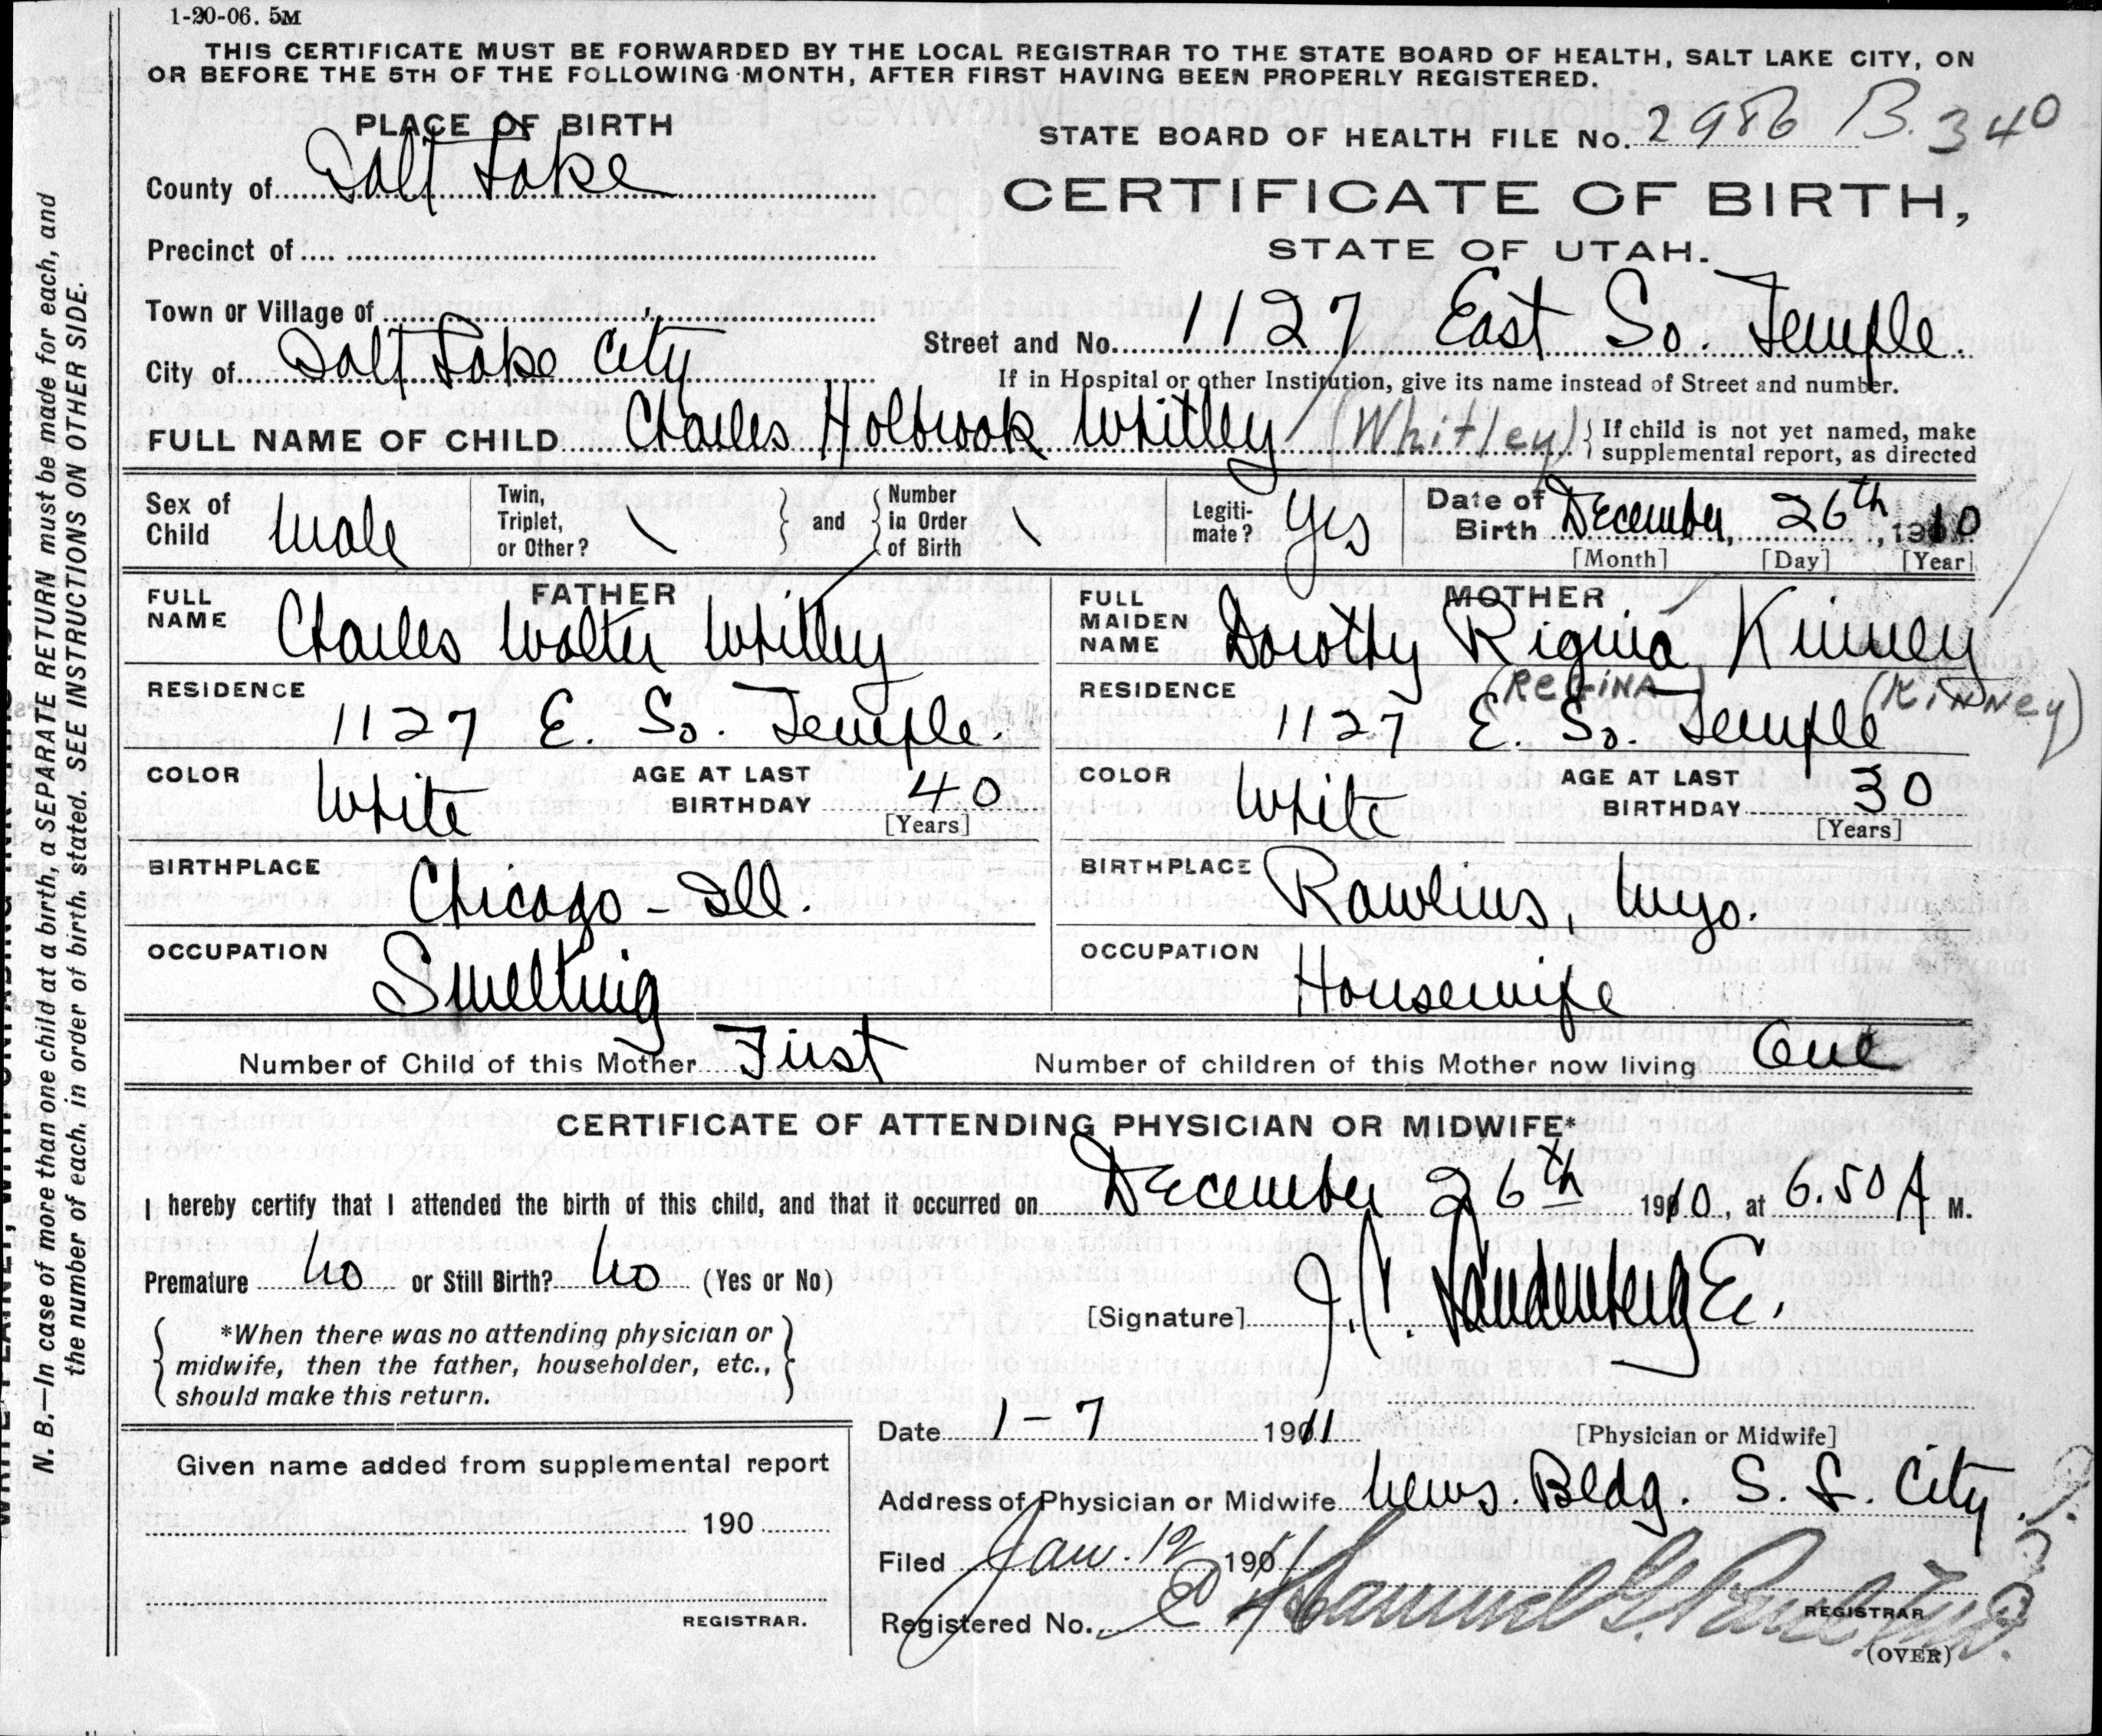 1-20-06. 5M
THIS CERTIFICATE MUST BE FORWARDED BY THE LOCAL REGISTRAR TO THE STATE BOARD OF HEALTH, SALT LAKE CITY, ON
OR BEFORE THE 5TH OF THE FOLLOWING MONTH, AFTER FIRST HAVING BEEN PROPERLY REGISTERED.
PLACE OF BIRTH
STATE BOARD OF HEALTH FILE No. 2986 B. 340
County of Salt Lake
CERTIFICATE OF BIRTH,
Precinct of
STATE OF UTAH.
Town or Village of
Street and No. 1127 East So. Temple
City of Salt Lake City
If in Hospital or other Institution, give its name instead of Street and number.
FULL NAME OF CHILD Charles Holbrook Whitley (Whitley) If child is not yet named, make
supplemental report, as directed
Sex of Child Male
Twin, Triplet, or Other? \ and Number in Order of Birth \
Legiti-mate? Yes
Date of Birth December, 26th, 1910
[Month] [Day] [Year]
FATHER
FULL NAME Charles Walter Whitley
MOTHER
FULL MAIDEN NAME Dorothy Rigina Kinney
(REGINA) (KINNey)
RESIDENCE 1127 E. So. Temple.
RESIDENCE 1127 E. So. Temple
COLOR White AGE AT LAST BIRTHDAY 40 [Years]
COLOR White AGE AT LAST BIRTHDAY 30 [Years]
BIRTHPLACE Chicago - Ill.
BIRTHPLACE Rawlins, Wyo.
OCCUPATION Smelting
OCCUPATION Housewife
Number of Child of this Mother First Number of children of this Mother now living One
CERTIFICATE OF ATTENDING PHYSICIAN OR MIDWIFE*
I hereby certify that I attended the birth of this child, and that it occurred on December 26th 1910, at 6.50 A M.
Premature No or Still Birth? No (Yes or No)
[Signature] J.
*When there was no attending physician or
midwife, then the father, householder, etc.,
should make this return.
Date 1-7 1911
[Physician or Midwife]
Given name added from supplemental report
Address of Physician or Midwife News. Bldg. S. L. City
190
Filed Jan. 12 190
REGISTRAR.
Registered No. Samuel G. Paul
REGISTRAR
(OVER)
N. B.—In case of more than one child at a birth, a SEPARATE RETURN must be made for each, and
the number of each, in order of birth, stated. SEE INSTRUCTIONS ON OTHER SIDE.